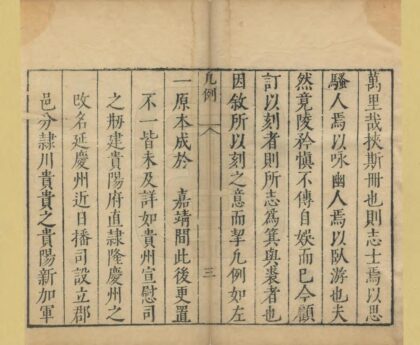 萬里哉挾斯冊也則志士焉以思
騷人焉以咏幽人焉以臥游也夫
然竟陵矜慎不傳自娛而已今顧
訂以刻者則所志為箕與裘者也
因敘所以刻之意而挈凡例如左
凡例 三
一原本成於 嘉靖間此後更置
不一皆未及詳如貴州宣慰司
之剏建貴陽府直隸隆慶州之
改名延慶州近日播司設立郡
邑分隸川貴貴之貴陽新加軍